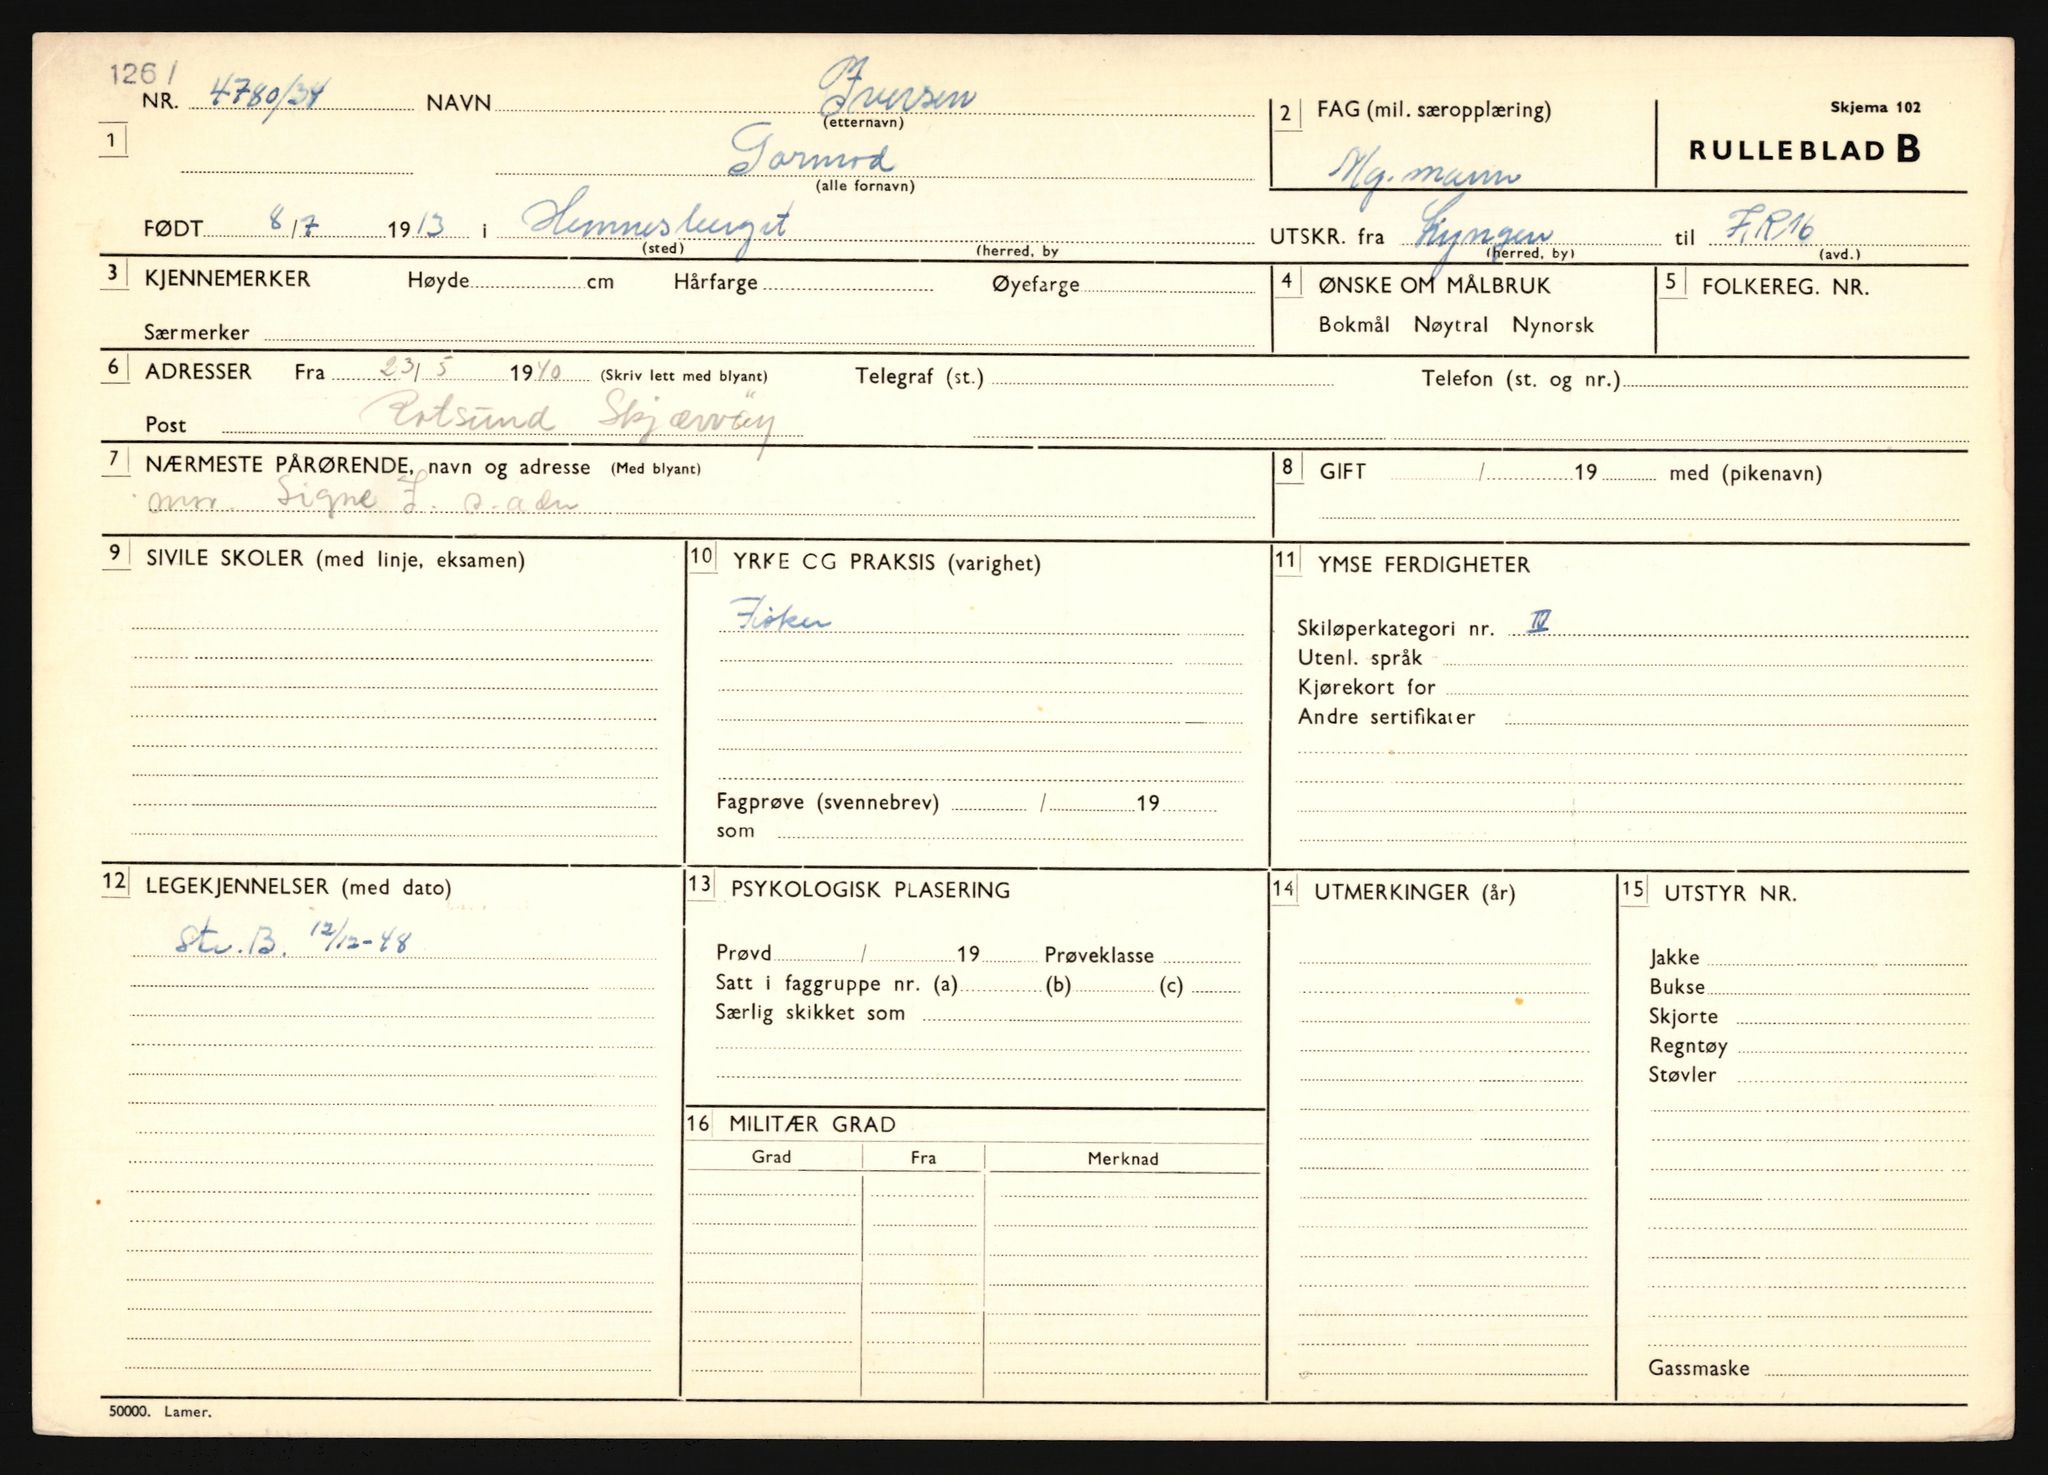 126 /
NR. 4780/34 NAVN Iversen
(etternavn)
1 Tormod
(alle fornavn)
2 FAG (mil. særopplæring)
Mg. mann
Skjema 102
RULLEBLAD B
FØDT 8/7 1913 i Hemnesberget
(sted) (herred, by
UTSKR. fra Lyngen til F.R 16
(herred, by) (avd.)
3 KJENNEMERKER Høyde cm Hårfarge Øyefarge
Særmerker
4 ØNSKE OM MÅLBRUK
Bokmål Nøytral Nynorsk
5 FOLKEREG. NR.
6 ADRESSER Fra 23/5 1940 (Skriv lett med blyant) Telegraf (st.) Telefon (st. og nr.)
Post Rotsund Skjærvöy
7 NÆRMESTE PÅRØRENDE, navn og adresse (Med blyant)
mor. Signe I. s. adr
8 GIFT / 19 med (pikenavn)
9 SIVILE SKOLER (med linje, eksamen)
10 YRKE CG PRAKSIS (varighet)
Fisker
Fagprøve (svennebrev) / 19
som
11 YMSE FERDIGHETER
Skiløperkategori nr. IV
Utenl. språk
Kjørekort for
Andre sertifikater
12 LEGEKJENNELSER (med dato)
Str. B. 12/12-48
13 PSYKOLOGISK PLASERING
Prøvd / 19 Prøveklasse
Satt i faggruppe nr. (a) (b) (c)
Særlig skikket som
14 UTMERKINGER (år)
15 UTSTYR NR.
Jakke
Bukse
Skjorte
Regntøy
Støvler
Gassmaske
16 MILITÆR GRAD
Grad Fra Merknad
50000. Lamer.